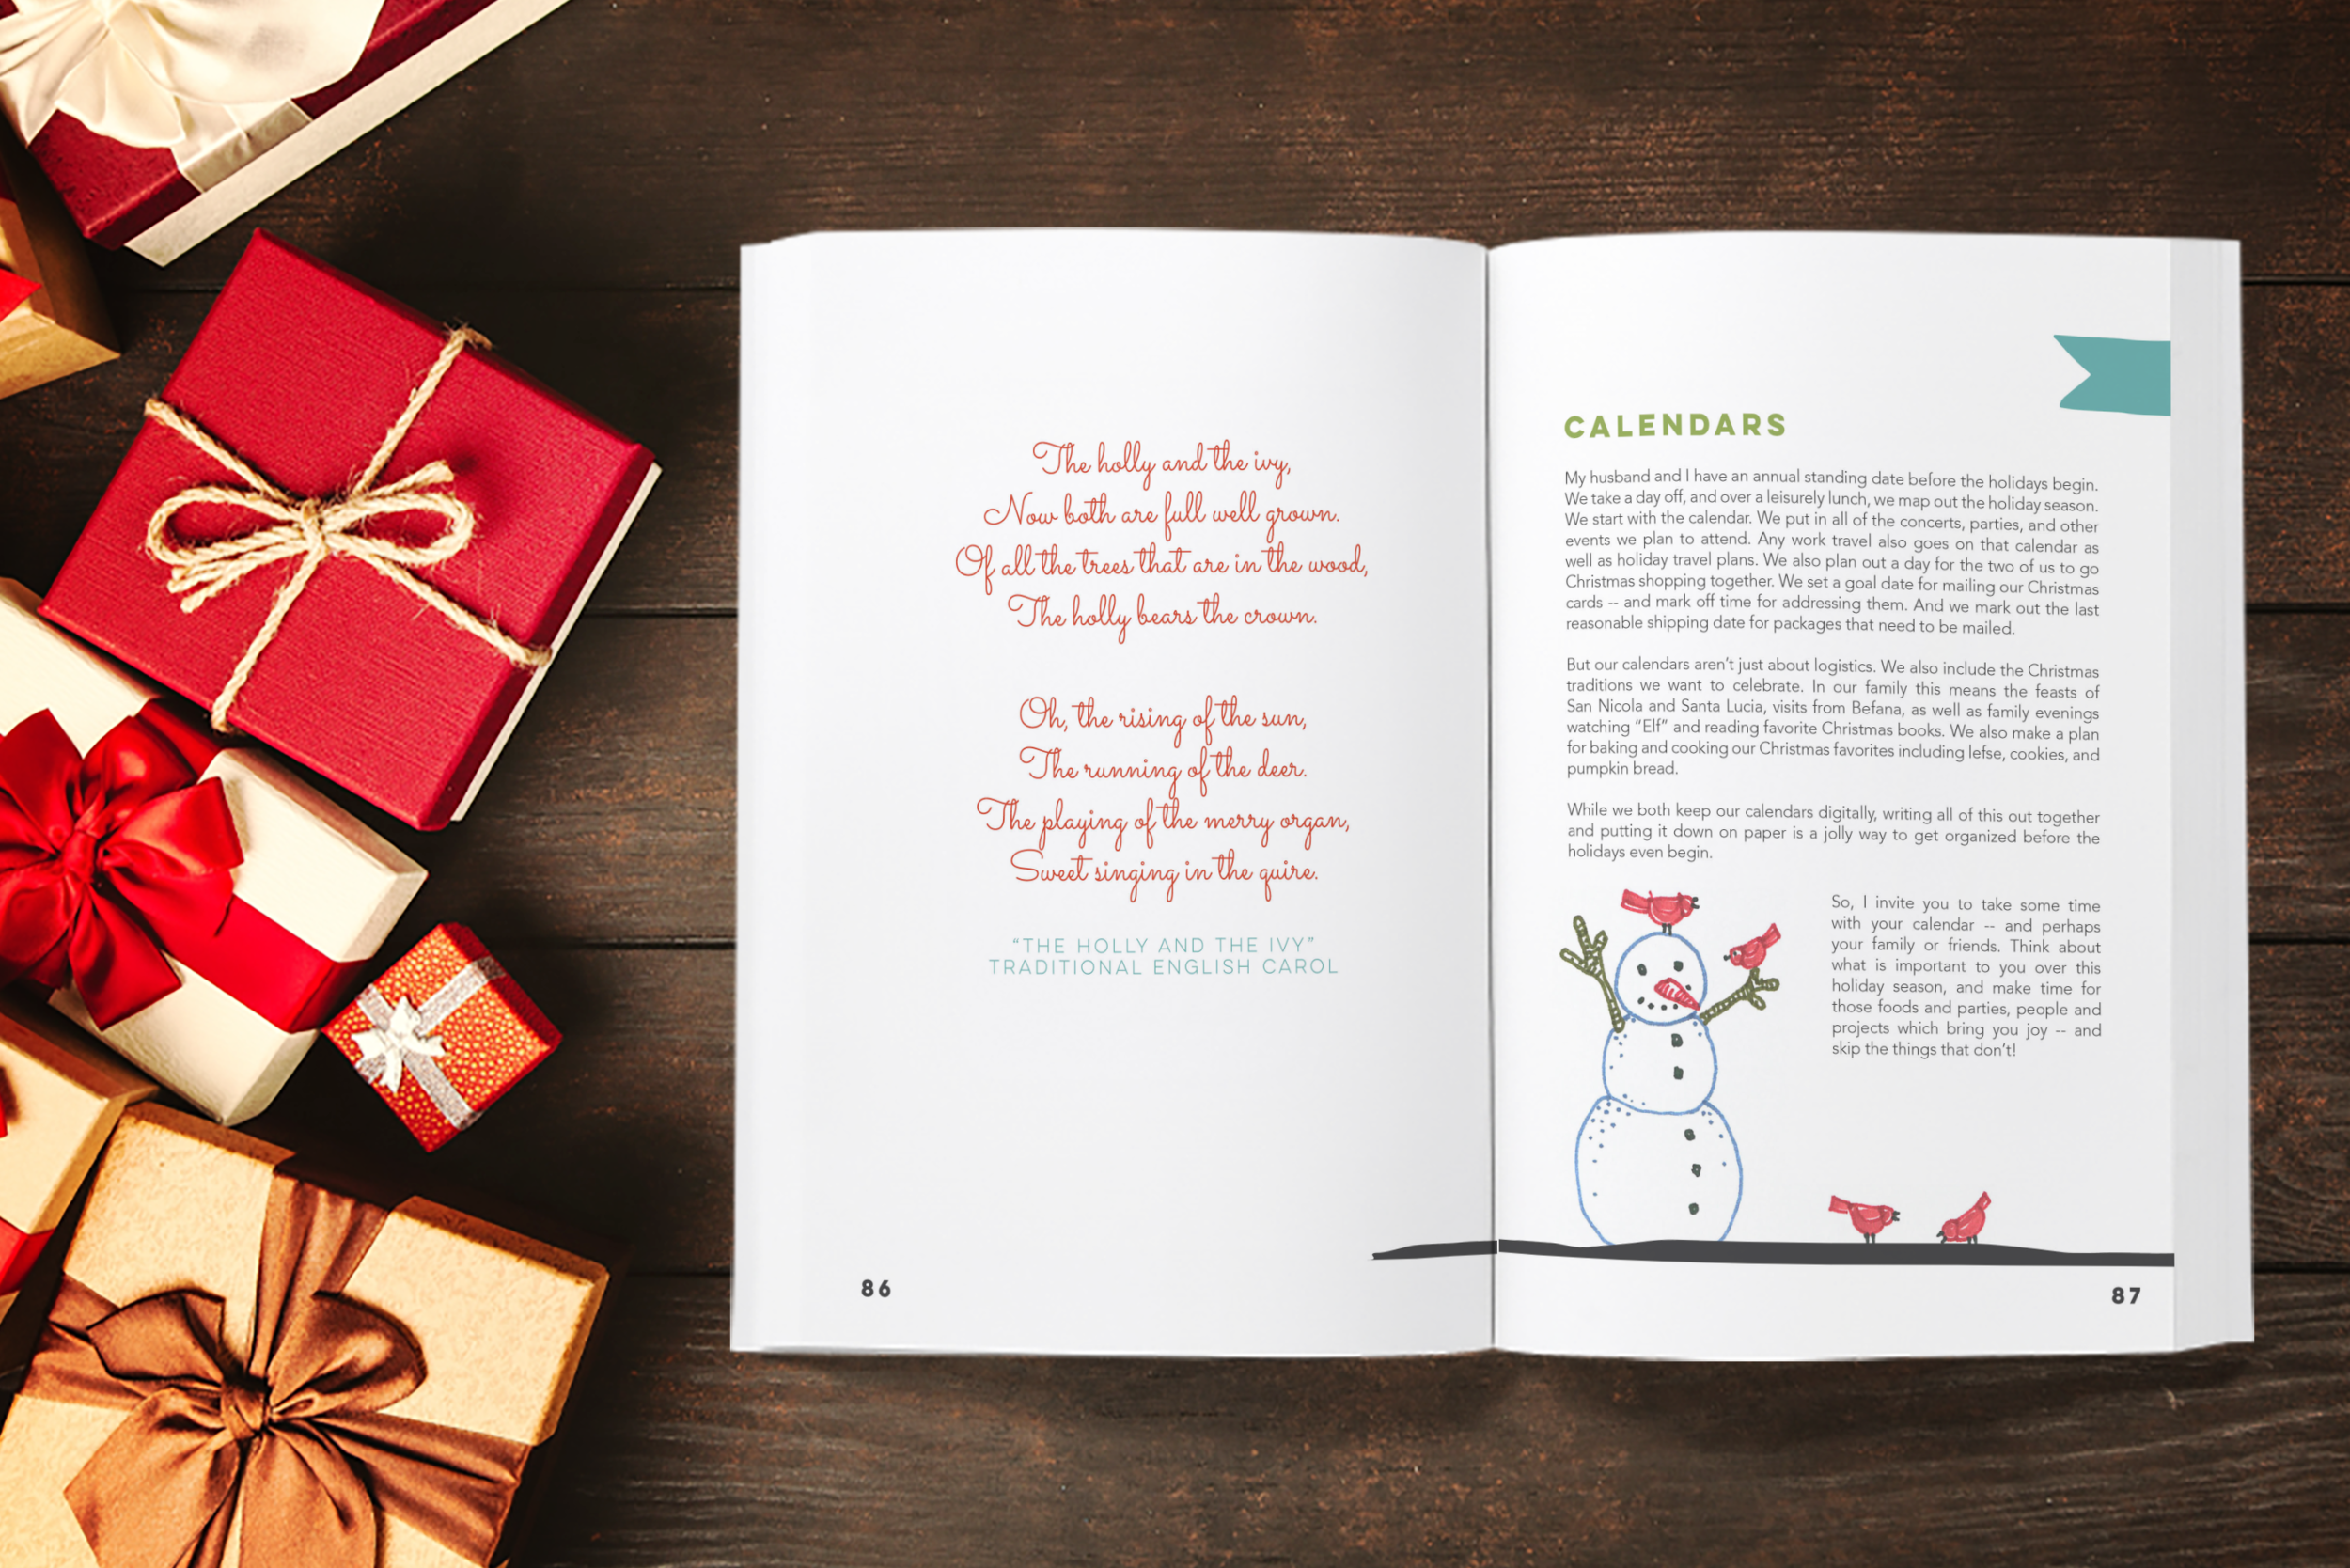 The holly and the ivy,
Now both are full well grown.
Of all the trees that are in the wood,
The holly bears the crown.
Oh, the rising of the sun,
The running of the deer.
The playing of the merry organ,
Sweet singing in the quire.
"THE HOLLY AND THE IVY"
TRADITIONAL ENGLISH CAROL
86
CALENDARS
My husband and I have an annual standing date before the holidays begin.
We take a day off, and over a leisurely lunch, we map out the holiday season.
We start with the calendar. We put in all of the concerts, parties, and other
events we plan to attend. Any work travel also goes on that calendar as
well as holiday travel plans. We also plan out a day for the two of us to go
Christmas shopping together. We set a goal date for mailing our Christmas
cards -- and mark off time for addressing them. And we mark out the last
reasonable shipping date for packages that need to be mailed.
But our calendars aren't just about logistics. We also include the Christmas
traditions we want to celebrate. In our family this means the feasts of
San Nicola and Santa Lucia, visits from Befana, as well as family evenings
watching "Elf" and reading favorite Christmas books. We also make a plan
for baking and cooking our Christmas favorites including lefse, cookies, and
pumpkin bread.
While we both keep our calendars digitally, writing all of this out together
and putting it down on paper is a jolly way to get organized before the
holidays even begin.
So, I invite you to take some time
with your calendar -- and perhaps
your family or friends. Think about
what is important to you over this
holiday season, and make time for
those foods and parties, people and
projects which bring you joy -- and
skip the things that don't!
87